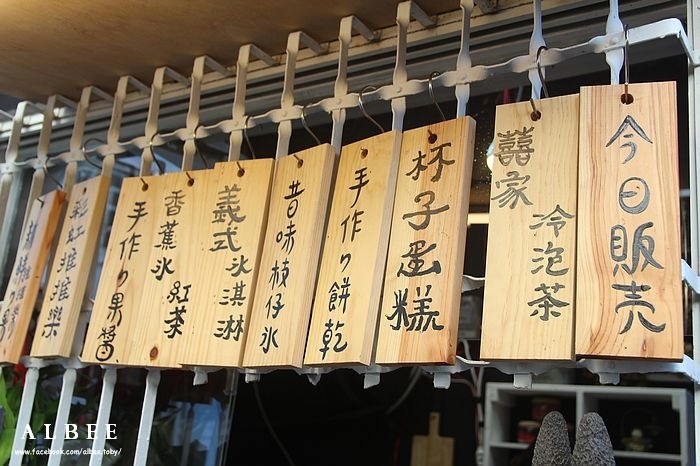 今日販売
囍家
冷泡茶
杯子蛋糕
手作り餅乾
昔味枝仔氷
義式
氷淇淋
香蕉氷
紅茶
手作り果醬
彩虹推推樂
ALBEE
www.facebook.com/albee.toby/